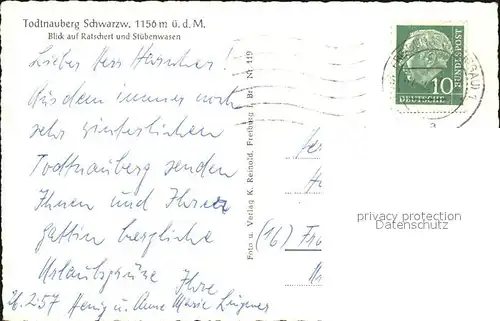 Todtnauberg Schwarzw. 1156 m ü. d. M.
Blick auf Ratschert und Stübenwasen
Lieber Herr
Aus dem immer noch
sehr winterlichen
Todtnauberg senden
Ihnen und Ihrer
Gattin herzliche
Urlaubsgrüße Ihre
26.2.57 u. Anne Marie
Foto u. Verlag K. Reinold, Freiburg i. Br. Nr. 119
DEUTSCHE
BUNDESPOST
10
a
(16)
privacy protection
Datenschutz